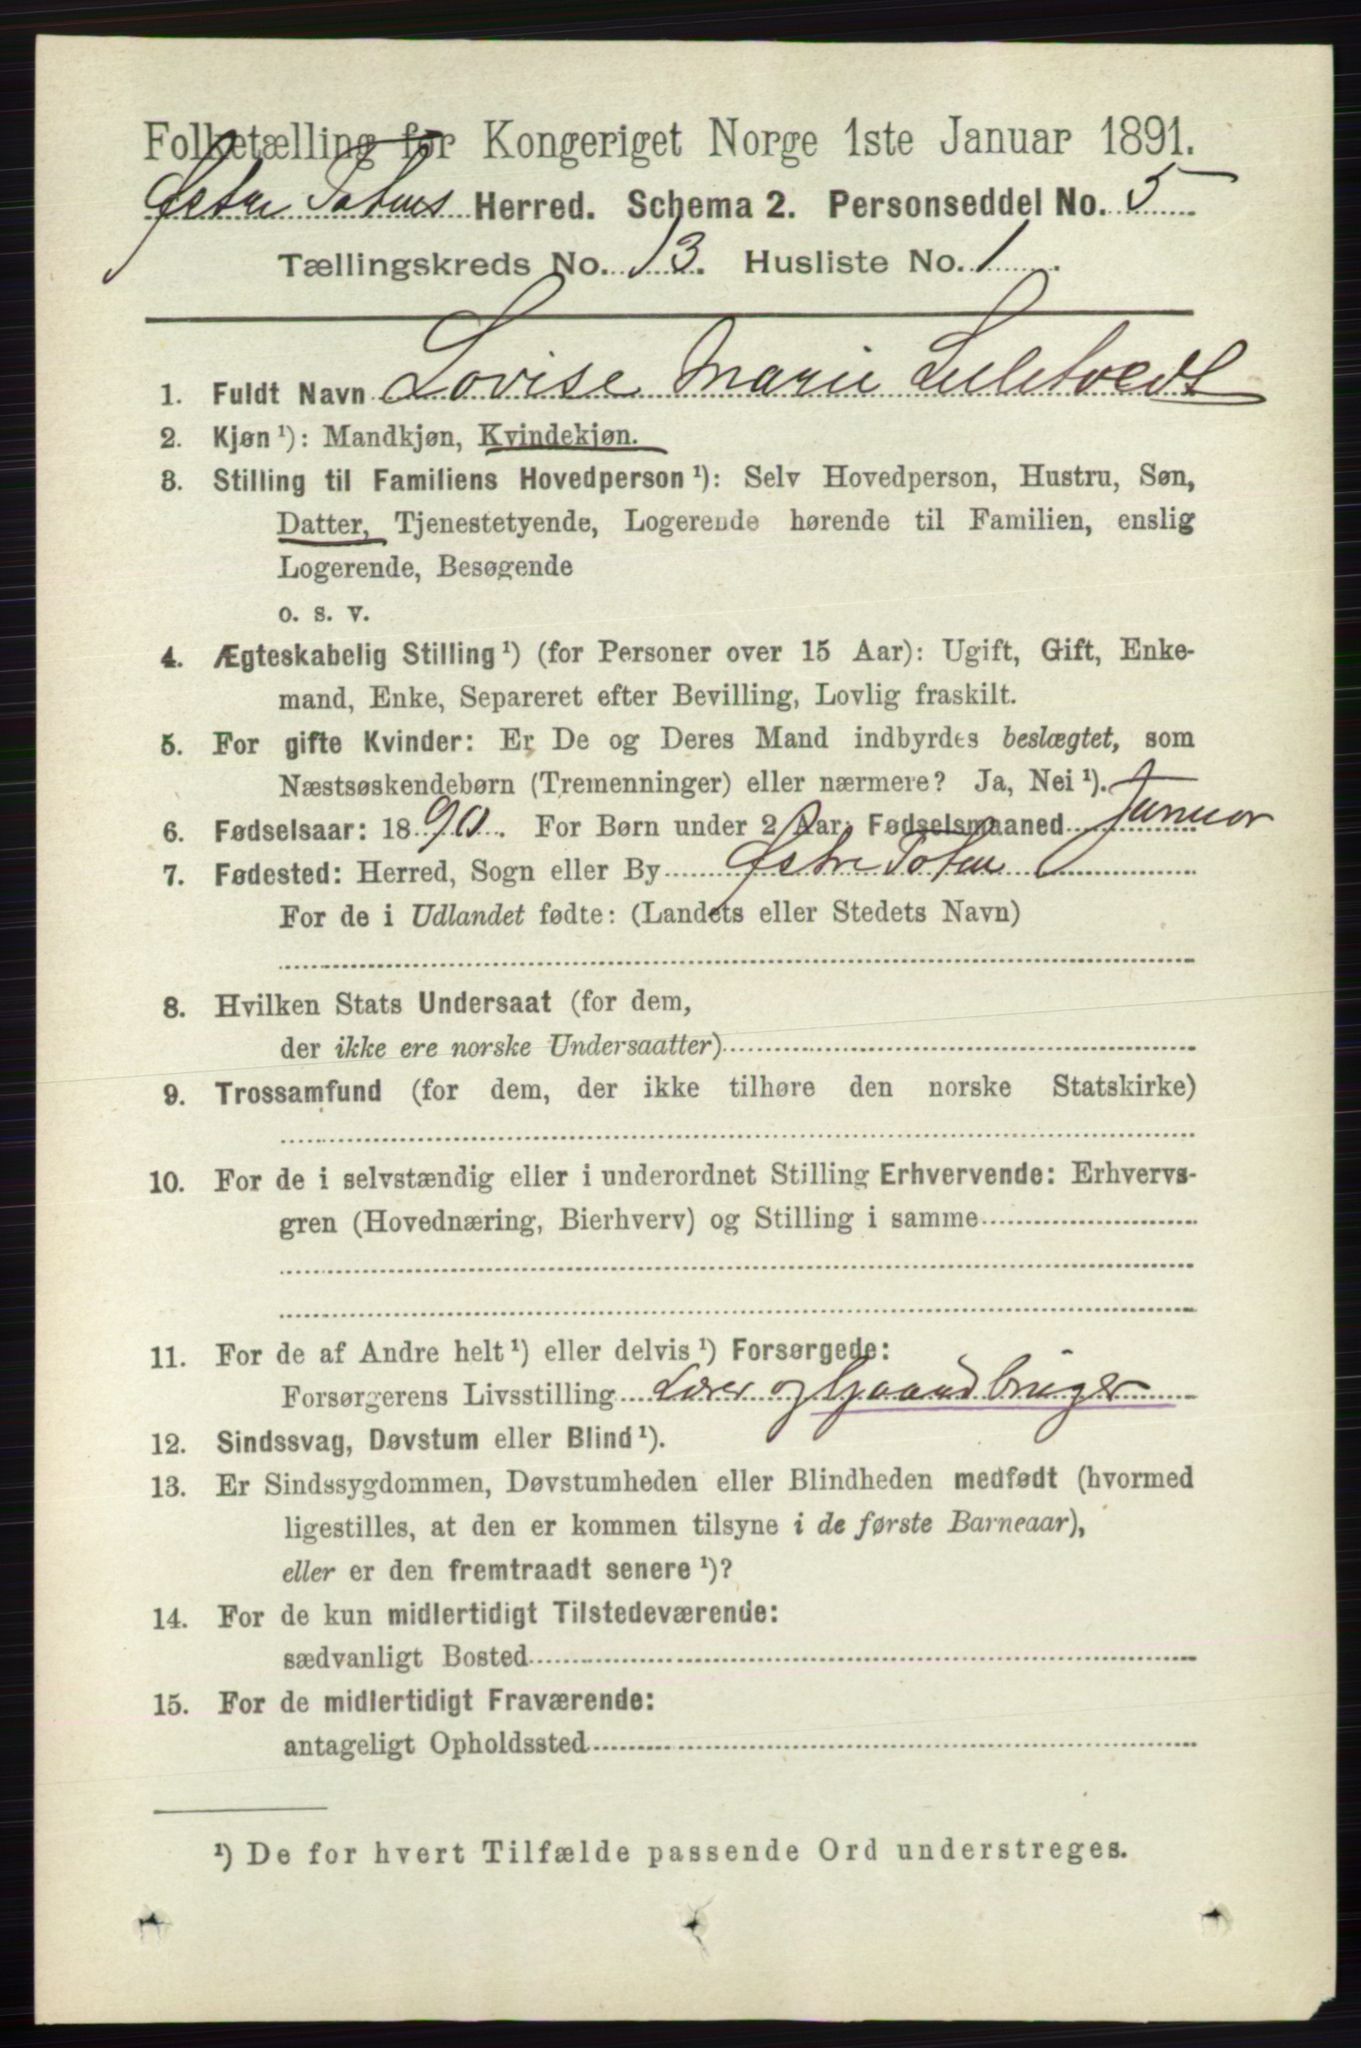 Folketælling for Kongeriget Norge 1ste Januar 1891.
Østre Totens Herred. Schema 2. Personseddel No. 5
Tællingskreds No. 13. Husliste No. 1.
1. Fuldt Navn Lovise Marie Liletvedt
2. Kjøn ¹): Mandkjøn, Kvindekjøn.
3. Stilling til Familiens Hovedperson ¹): Selv Hovedperson, Hustru, Søn,
Datter, Tjenestetyende, Logerende hørende til Familien, enslig
Logerende, Besøgende
o. s. v.
4. Ægteskabelig Stilling ¹) (for Personer over 15 Aar): Ugift, Gift, Enke-
mand, Enke, Separeret efter Bevilling, Lovlig fraskilt.
5. For gifte Kvinder: Er De og Deres Mand indbyrdes beslægtet, som
Næstsøskendebørn (Tremenninger) eller nærmere? Ja, Nei ¹).
6. Fødselsaar: 1890. For Børn under 2 Aar: Fødselsmaaned Januar
7. Fødested: Herred, Sogn eller By Østre Toten
For de i Udlandet fødte: (Landets eller Stedets Navn)
8. Hvilken Stats Undersaat (for dem,
der ikke ere norske Undersaatter)
9. Trossamfund (for dem, der ikke tilhøre den norske Statskirke)
10. For de i selvstændig eller i underordnet Stilling Erhvervende: Erhvervs-
gren (Hovednæring, Bierhverv) og Stilling i samme
11. For de af Andre helt ¹) eller delvis ¹) Forsørgede:
Forsørgerens Livsstilling Lærer og Gaardbruger
12. Sindssvag, Døvstum eller Blind ¹).
13. Er Sindssygdommen, Døvstumheden eller Blindheden medfødt (hvormed
ligestilles, at den er kommen tilsyne i de første Barneaar),
eller er den fremtraadt senere ¹)?
14. For de kun midlertidigt Tilstedeværende:
sædvanligt Bosted
15. For de midlertidigt Fraværende:
antageligt Opholdssted
¹) De for hvert Tilfælde passende Ord understreges.